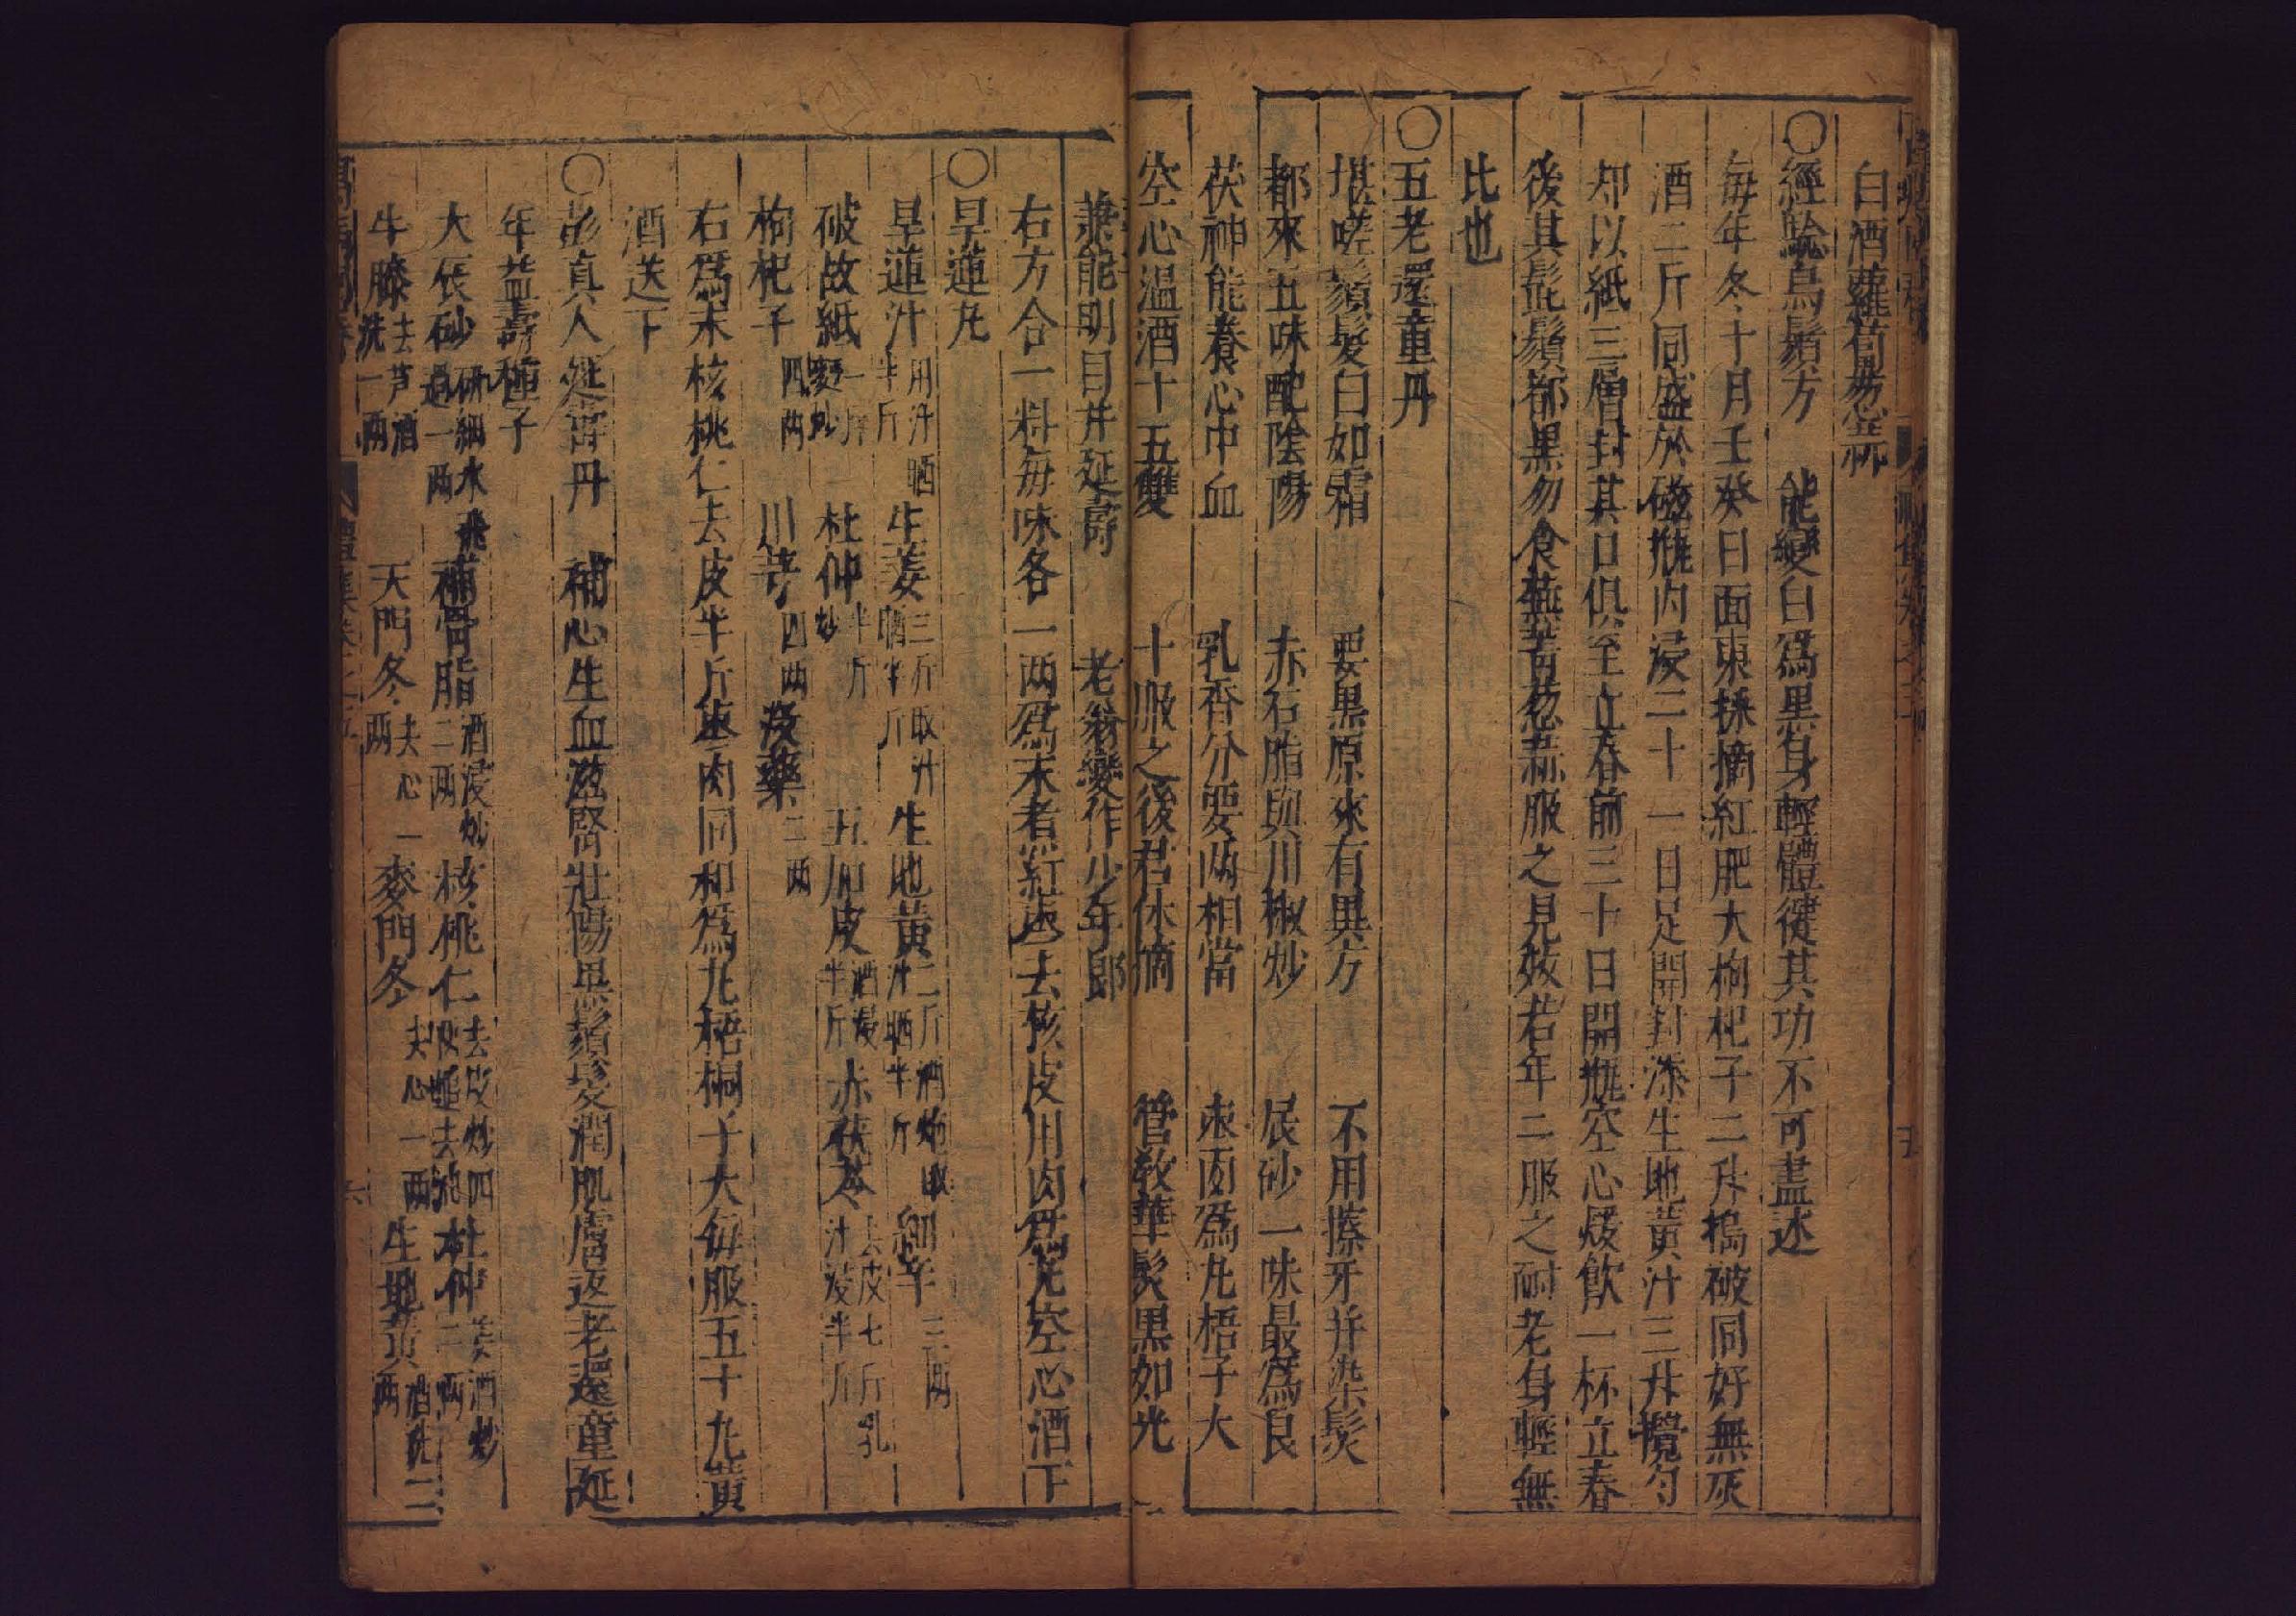 白酒蘿蔔葱蒜
〇經騐烏鬚方　能變白爲黑身輕體健其功不可盡述
每年冬十月壬癸日面東採摘紅肥大枸杞子二升搗破同好無灰
酒二斤同盛於磁瓶内浸二十一日足開封添生地黃汁三升攪勻
却以紙三層封其口俱至立春前三十日開瓶空心煖飲一杯立春
後其髭鬚都黑勿食蕪荑葱蒜服之見效若年二服之耐老身輕無
比也
〇五老還童丹
堪嗟鬚髮白如霜　要黑原來有異方　不用擦牙并染髮
都來五味配陰陽　赤石脂與川椒炒　辰砂一味最爲良
茯神能養心中血　乳香分要两相當　枣肉爲丸梧子大
空心温酒十五雙　十服之後君休摘　管敎華髮黒如光
兼能明目并延壽　老翁變作少年郎
右方合一料每味各一两爲末煮紅枣去核皮用肉爲丸空心酒下
〇旱蓮丸
旱蓮汁 用汁晒半斤 生姜 三斤取汁晒半斤 生地黃 二斤酒炮取汁晒半斤 細辛 三两
破故紙 一斤麵炒 杜仲 半斤炒 五加皮 酒浸半斤 赤茯苓 去皮七斤乳汁浸半斤
枸杞子 四两 川芎 四两 沒藥 二两
右爲末核桃仁去皮半斤枣肉同和爲丸梧桐子大每服五十丸黃
酒送下
〇彭真人延壽丹　補心生血滋腎壯陽黑鬚髮潤肌膚返老還童延
年益壽種子
大辰砂 研細水飛過一两 補骨脂 酒浸炒二两 核桃仁 去皮炒四两 杜仲 姜酒炒二两
牛膝 去芦酒洗一两 天門冬 去心一两 麥門冬 去心一两 生地黃 酒洗二两